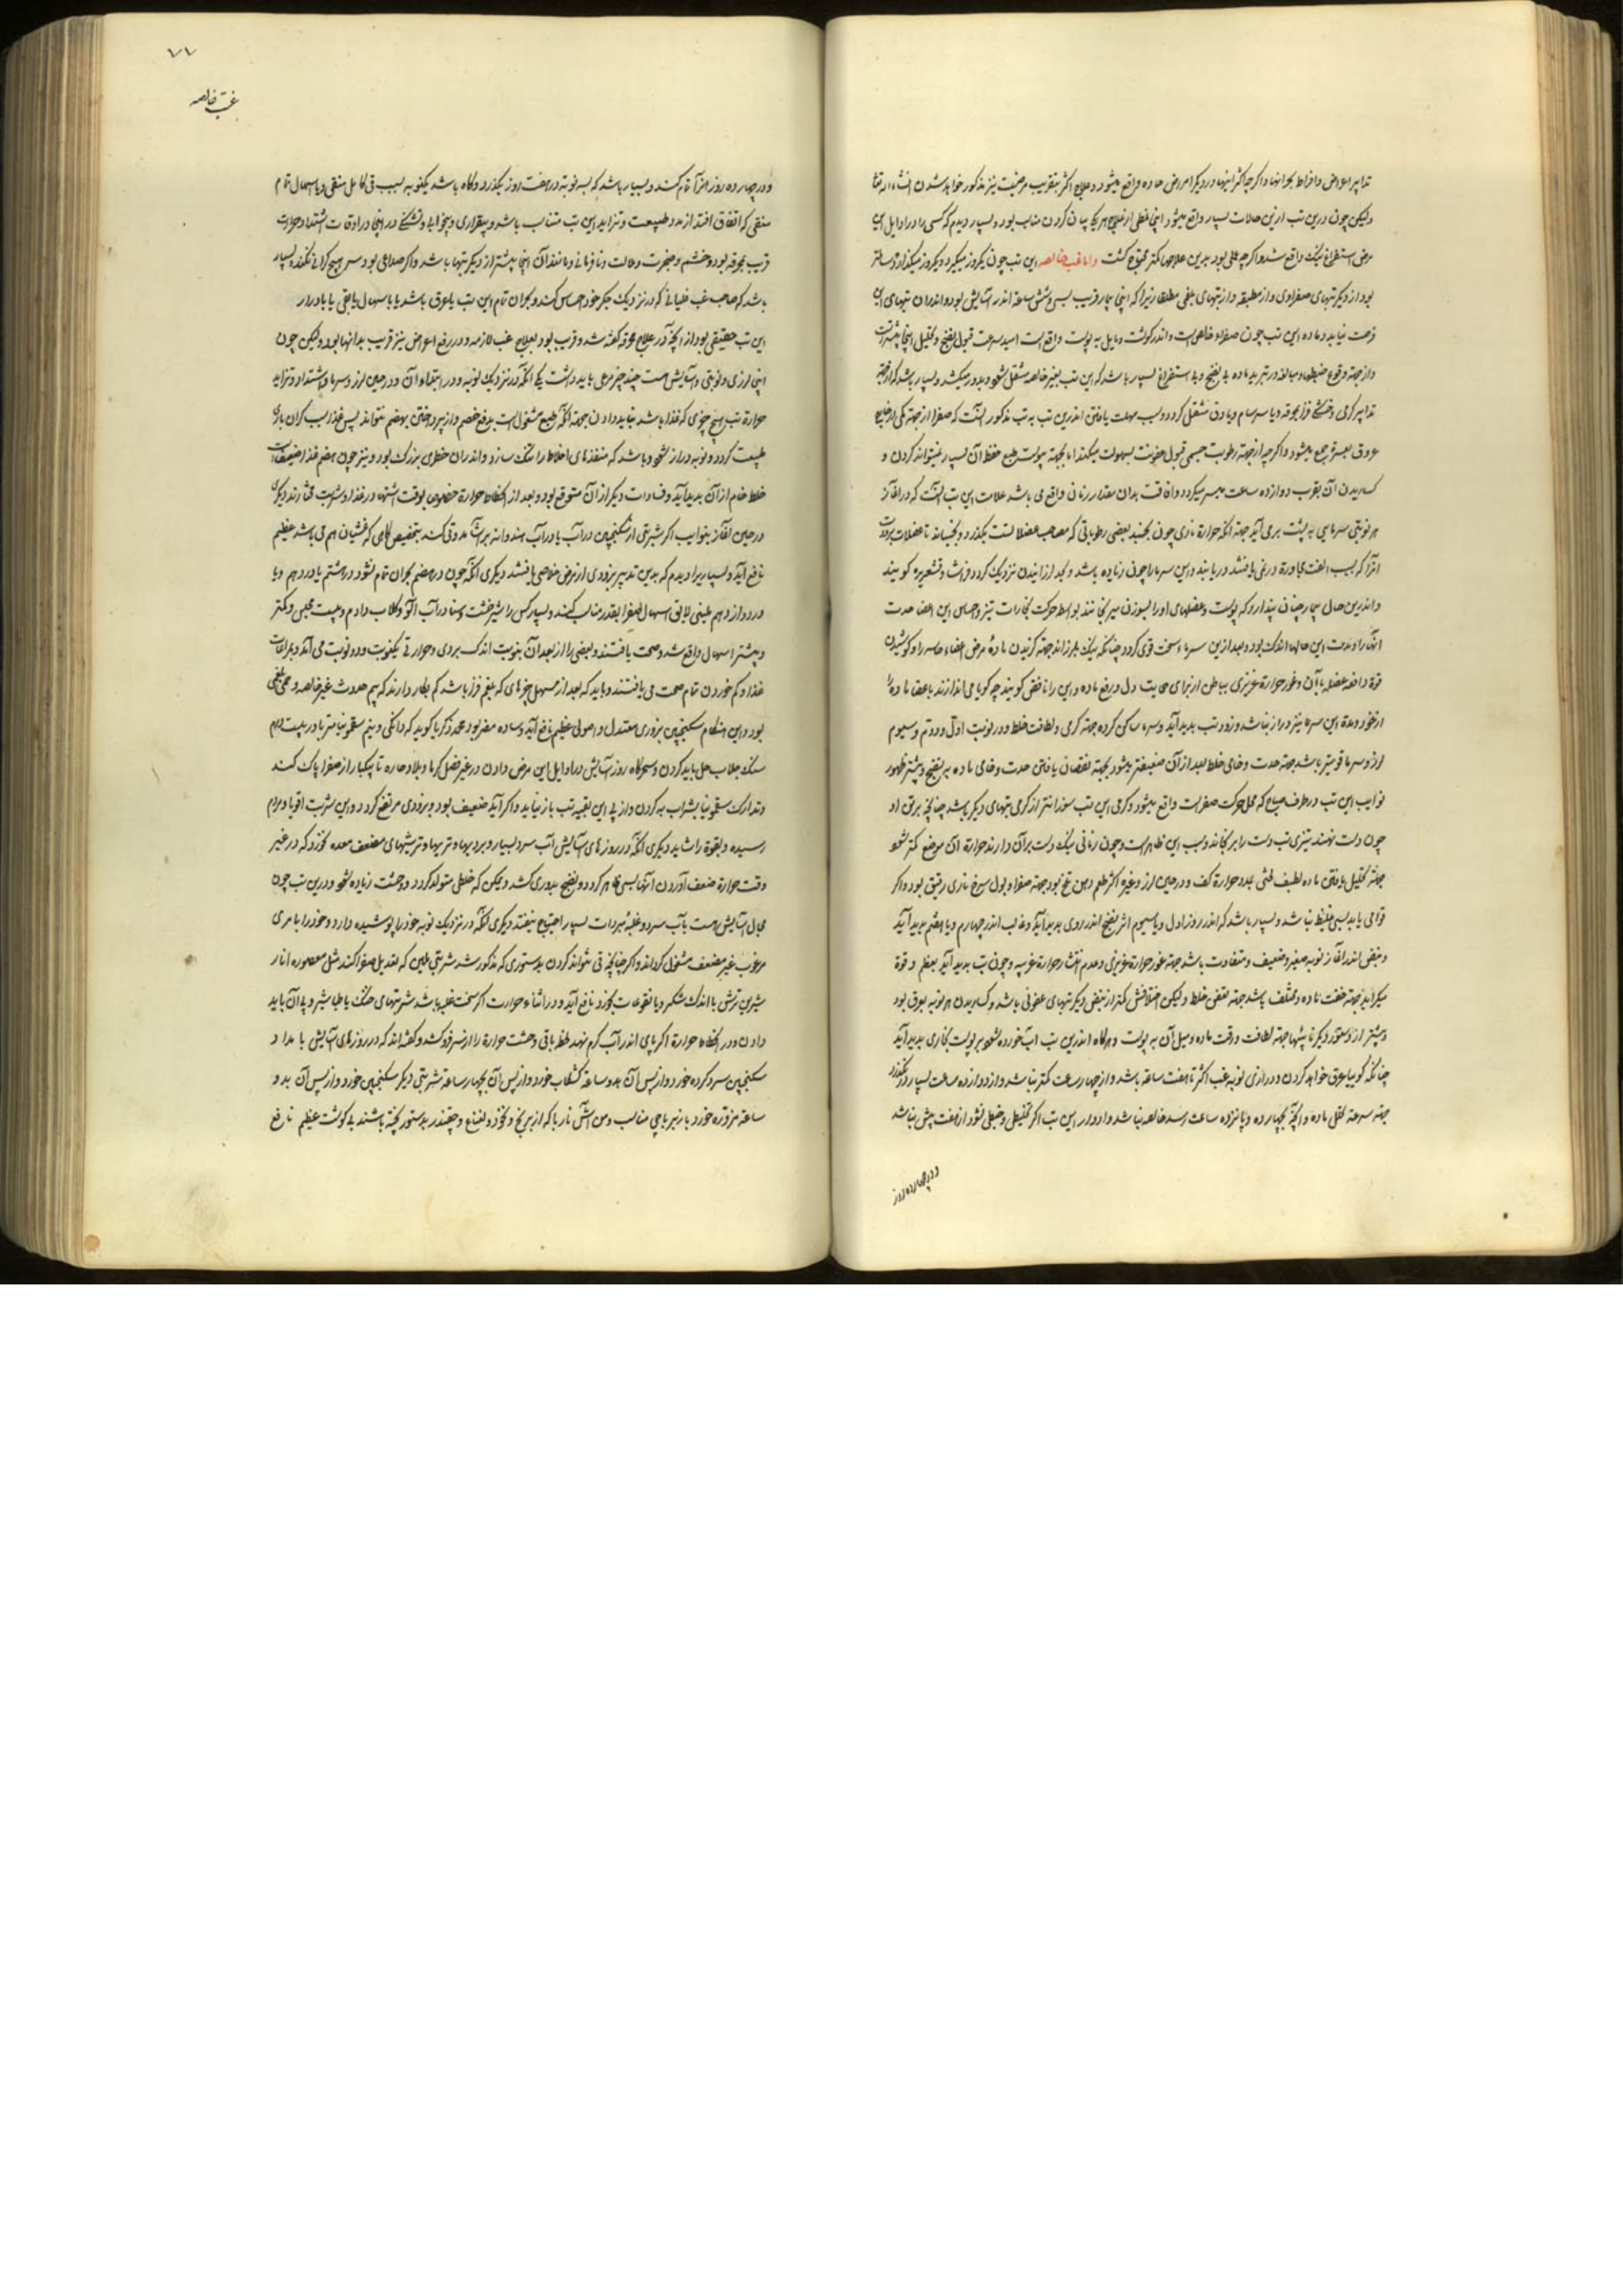 تدابیر اعراض و افراط بحرانها و اگرچه اکثر اینها در دیگر امراض حاده واقع میشود و علاج اکثر بتقریب مرضیت نیز مذکور خواهد شدن انشاء الله تعا
ولیکن چون درین تب ازین حالات بسیار واقع میشود اینجا از علاج هر یک بیان کردن مناسب بود و بسیار دیدم که کسی را در اوایل این
مرض استفراغ نیک واقع شد و اگرچه بود بدین علاجها کمتر محتاج گشت و اما غب خالصه این تب چون یکروز میگیرد و یکروز میگذارد
بود از دیگر تبهای صفراوی و از مطبقه و از تبهای بلغمی مطلقا زیرا که اینجا بیمار قریب بسی و شش ساعة اندر آسایش بود و اندران تبهای
فرصت نیابد و ماده این تب چون صفراء خالص است و اندر گوشت و مایل به پوست واقع است امید سرعت قبول نضج و تحلیل اینجا بیشتر
و از جهة وقوع و مبالغه در تبرید ماده بی نضج و بی استفراغ بسیار باشد که این تب بغیر خالصه منتقل شود و بدور میکشد و بسیار باشد که از جهة
تدابیر گرمی و خشکی فزا بمحرقه و یا سرسام و یا دق منتقل گردد و سبب مهلت یافتن اندرین تب به تب مذکور آنست که صفرا از جهة کمی از خارج
عروق بعسر جمع میشود و اگرچه از جهة رطوبت جسمی قبول عفونت بسهولت میکند اما بجهة یبوست طبع حفظ آن بسیار نمیتواند کردن و
گساریدن آن بقرب دوازده ساعت میسر میگردد و افاقت بدان مقدار زمانی واقع می باشد علامات این تب آنست که در آغاز
هر نوبتی سرمایی به پشت برمی آید جهة آنکه حرارة ناری چون بجنبد بعضی رطوباتی که مصاحب عضلاتست بگذرد و بجنباند تا عضلات برودت
آنرا که بسبب الفت مجاورة در نمی یافتند دریابند و این سرما را چون زیاده باشد و بحد لرزانیدن نزدیک گردد فراشا و قشعریره گویند
و اندرین حال بیمار چنان پندارد که پوست و عضلهای او را بسوزن میرنجانند بواسطه حرکت بخارات تیز و حساس این اعضا حدت
آنها را و مدت این حالها اندک بود و بعد ازین سرما سخت قوی گردد چنانکه نیک بلرزاند جهة گزیدن مادهٔ مرض اعضاء حساسه را و کوشیدن
قوة دافعه عضله با آن و غور حرارة غریزی بباطن از برای حمایت دل و رفع ماده و این را نافض گویند چه گویا می اندازند باعضا ماده را
از خود و مدة این سرما نیز دراز نباشد و زود تب بدید آید و سرما ساکن کرده جهة گرمی و لطافت خلط و در نوبت اول و دوم و سیوم
لرز و سرما قویتر باشد جهة حدت و خامی خلط بعد از آن ضعیفتر میشود بجهة نقصان یافتن حدت و خامی ماده به نضج و بیشتر ظهور
نوایب این تب در طرف صباح که محل حرکت صفراست واقع میشود و گرمی این تب سوزانتر از گرمی تبهای دیگر باشد چنانچه بر تن او
چون دست نهند تیزی تب دست را برنجاند و سبب این ظاهر است و چون زمانی نیک دست بر آن دارند حرارة آن موضع کمتر شود
جهة تحلیل یافتن ماده لطیف بمدد حرارة کف و در حین لرز و غیره اکثر طعم دهن تلخ بود جهة صفرا و بول سرخ ناری رقیق بود و اگر
قوامی یابد بسی غلیظ نباشد و بسیار باشد که اندر روز اول و یا سیوم اثر نضج اندر وی بدید آید و غالب اندر چهارم و یا هفتم بدید آید
و نبض اندر آغاز نوبه صغیر و ضعیف و متفاوت باشد جهة غور حرارة غریزی و عدم انتشار حرارة غریبه و چون تب بدید آید بعظم و قوة
میگراید جهة خفت ماده و مختلف باشد جهة نقض خلط ولیکن اختلافش کمتر از نبض دیگر تبهای عفونی باشد و گساریدن هر نوبه بعرق بود
و بیشتر از و دیگر جهة لطافت و رقت ماده و میل آن به پوست و هرگاه اندرین تب آب خورده شود بر پوست بخاری بدید آید
چنانکه گوییا عرق خواهد کردن و درازی نوبه غب اکثر تا هفت ساعة باشد و از چهار ساعت کمتر نباشد و از دوازده ساعت بسیار در نگذرد
جهة سرعة تحلل ماده و آنچه بچهارده و پانزده ساعت رسد خالصه نباشد و ادوار این تب اگر تخلیطی و خبطی نشود از هفت بیش نباشد
و در چهارده روز
٧٧
غب خالصه
و در چهارده روز هم آنا تمام کند و بسیار باشد که بسه نوبة در هفت روز بگذرد و گاه باشد بیکنوبه بسبب قی کامل منقی و یا اسهال تمام
منقی که اتفاق افتد از مدد طبیعت و تزاید این تب متناسب باشد و بیقراری و بیخوابی و تشنگی در اینجا در اوقات اشتداد حرارت
قریب بمحرقه بود و خشم و ضجرت و ملالت و نافرمانی و مانند آن اینجا بیشتر از دیگر تبها باشد و اگر صداعی بود سر هیچ گرانی نکند و بسیار
باشد که صاحب غب غلیانی که در نزدیک جگر خود احساس کند و بحران تمام این تب یا بعرق باشد یا باسهال یا بقی یا بادرار
این تب حقیقی بود از آنچه در علاج محرقه گفته شد و قریب بود بعلاج غب لازمه و در رفع اعراض نیز قریب بدانها بود ولیکن چون
اینجا لرزی و نوبتی و آسایش هست چند چیز مرعی باید داشت یکی آنکه در نزدیک نوبه و در ابتداء آن و در حین لرز و سرما و اشتداد و تزاید
حرارة تب هیچ چیزی که غذا باشد نباید دادن جهة آنکه طبع مشغول است بدفع خصم و از پرداختن بهضم نتواند پس غذا سبب گران باری
طبیعت گردد و نوبه دراز شود و باشد که منفذهای اخلاط را تنگ سازد و اندران خطری بزرگ بود و نیز چون هضم غذا ضعیف است
خلط خام از آن بدید آید و فسادات دیگر از آن متوقع بود و بعد از انحطاط حرارة خصوصا بوقت اشتها در غذا و شربت مختارند دیگری
در حین آغاز نوایب اگر شربتی از سکنجبین در آب یا در آب هندوانه بیاشامد و قی کند بتخصیص گاهی که غشیان هم می باشد عظیم
نافع آید و بسیاری را دیدم که بدین تدبیر بزودی از مرض خلاصی یافتند دیگری آنکه چون در هفتم بحران تمام نشود در هشتم یا در دهم و یا
در دوازدهم ملینی لایق اسهال صفرا بقدر مناسب کنند و بسیار کس را شیرخشت و سنا در آب آلو و گلاب دادم و بیست مجلس و کمتر
و بیشتر اسهال واقع شد و صحت یافتند و بعضی را از بعد آن بنوبت اندک بردی و حرارتی یکنوبت و دو نوبت می آمد و بمراعات
غذا و کم خوردن تمام صحت می یافتند و باید که بعد از مسهل چیزهای که بلغم فزا باشد کم بکار دارند که بیم حدوث غیر خالصه و حمی بلغمی
بود و این هنگام سکنجبین بزوری معتدل و اصولی عظیم نافع آید و ساده مضر بود محمد زکریا گوید که دانگی و نیم سقمونیا مثربا در بیست درم
سنگ جلاب حل باید کردن و سحرگاه روز آسایش در اوایل این مرض دادن در غیر فصل گرما و بلاد حاره تا بیکبار از صفرا پاک کند
و تدارک سقمونیا بشراب به کردن و از پی این بقیه تب باز نیاید و اگر آید ضعیف بود و بزودی مرتفع گردد و این شربت اقویا و مردم
رسیده و بقوة را شاید دیگری آنکه در روزهای آسایش آب سرد بسیار و برودها و تریها و ترشیهای مضعف معده نخورد که در غیر
وقت حرارة ضعف آوردن آنها بسی ظاهر گردد و نضج بدوری کشد و یمکن که خلطی متولد گردد و وحشت زیاده شود و درین تب چون
مجال آسایش هست بآب سرد و غلبهٔ مبردات بسیار احتیاج نیفتد دیگری آنکه در نزدیک نوبه خود را پوشیده دارد و خود را بامری
مرغوب غیر مضعف مشغول گرداند و اگر چنانچه قی نتواند کردن بدستوری که مذکور شد شربتی ملین که تعدیل صفرا کند مثل معصوره انار
شیرین ترش با اندک شکر و یا نقوعات نخورد نافع آید و در اثناء حرارت اگر سخت غلبه باشد شربتهای خنک با طباشیر و پی آن باید
دادن و در انحطاط حرارة اگر پای اندر آب گرم نهد خلط باقی وحشت حرارة را از سر فرو کشد و گفته اند که در روزهای آسایش بامداد
سکنجبین سرد کرده خورد و از پس آن بدو ساعة کشکاب خورد و از پس آن بچهار ساعة شربتی دیگر سکنجبین خورد و از پس آن بدو
ساعة مزوره خورد یا زیرباجی مناسب و من آش ناربا که از برنج و نخود و نعناع و چغندر بدستور پخته باشند بی گوشت عظیم نافع